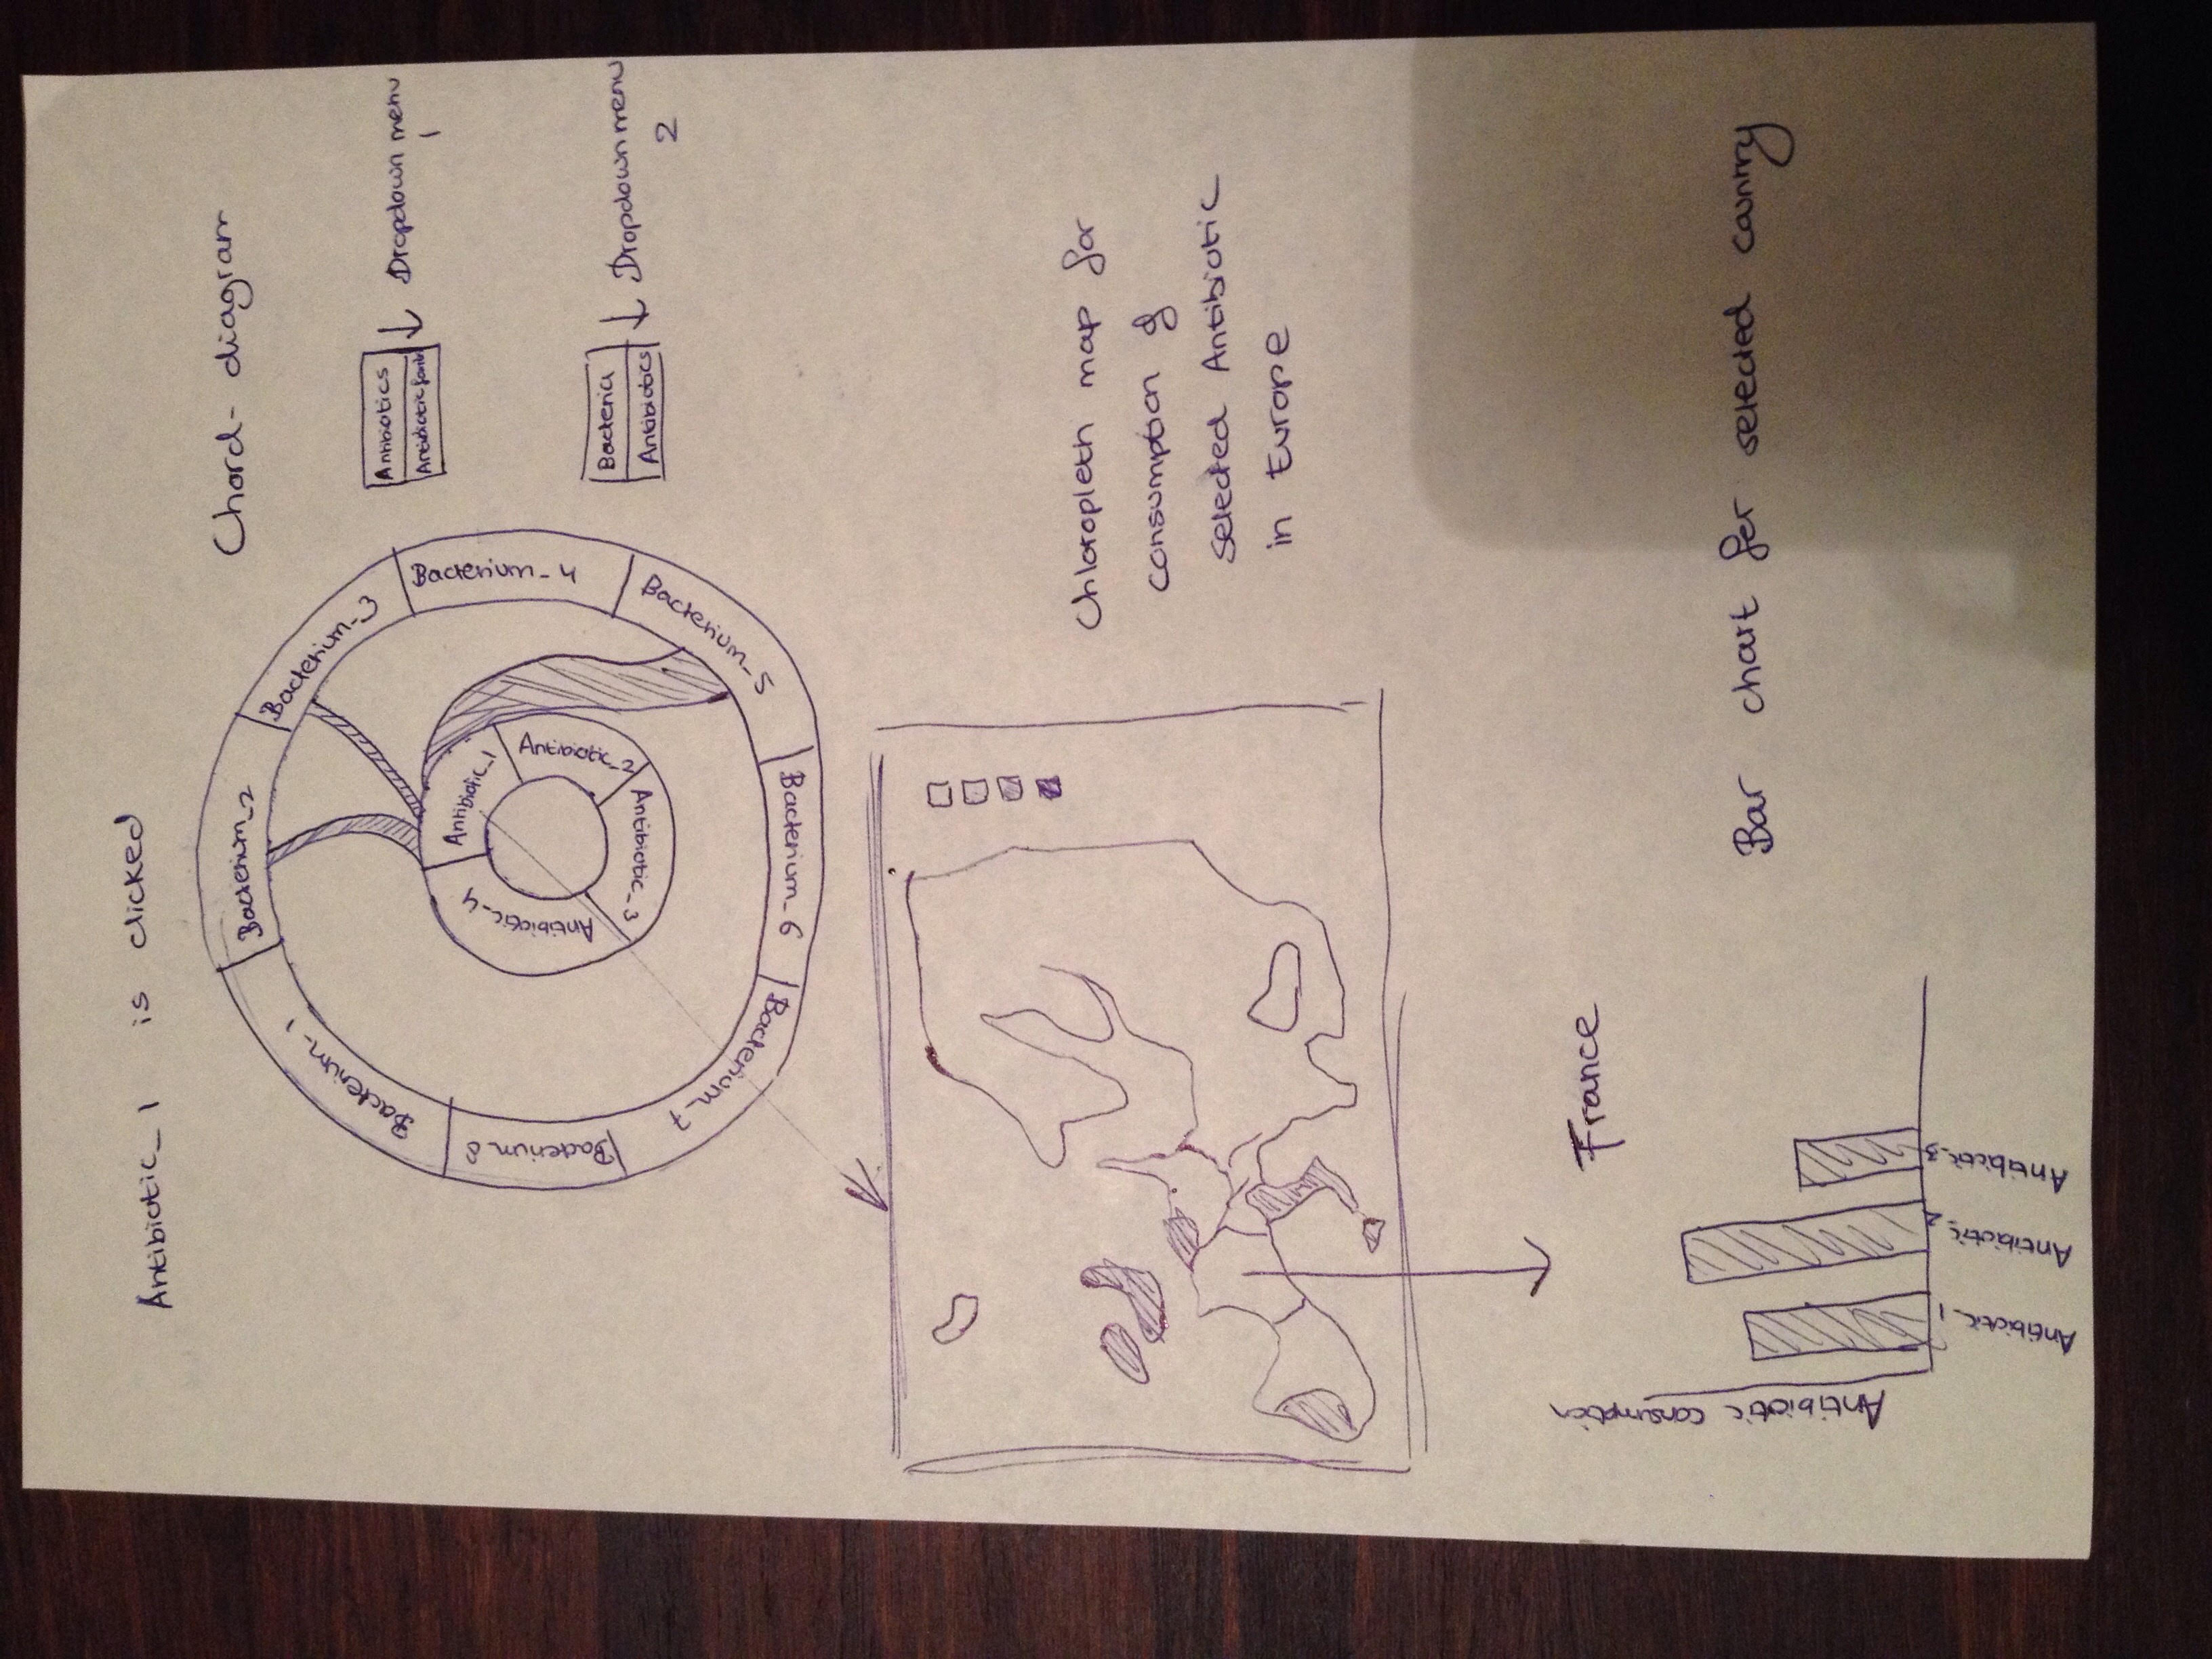 Antibiotic_1 is clicked
Chord-diagram
Bacterium_1
Bacterium_2
Bacterium_3
Bacterium_4
Bacterium_5
Bacterium_6
Bacterium_7
Bacterium 8
Antibiotic_1
Antibiotic_2
Antibiotic_3
Antibiotic_4
Antibiotics
Antibiotic
Dropdown menu
1
Bacteria
Antibiotics
Dropdown menu
2
Chloropleth map for
consumption of
selected Antibiotic
in Europe
France
Antibiotic consumption
Antibiotic_1
Antibiotic_2
Antibiotic_3
Bar chart for selected